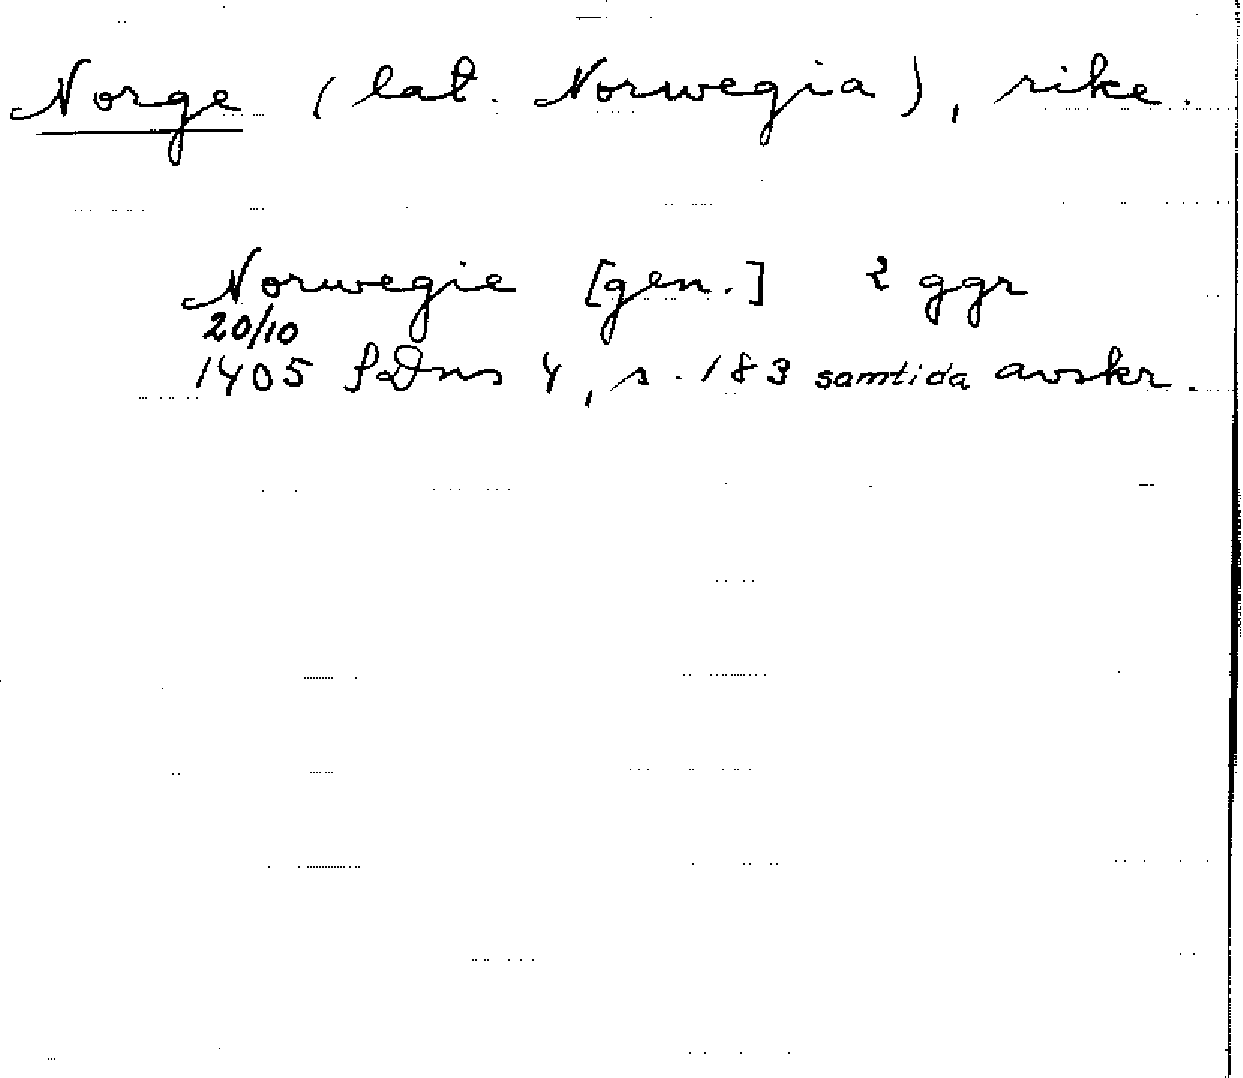 Norge (lat. Norwegia), rike.
Norwegie [gen.] 2 ggr
20/10
1405 SDns 4, s. 183 samtida avskr.